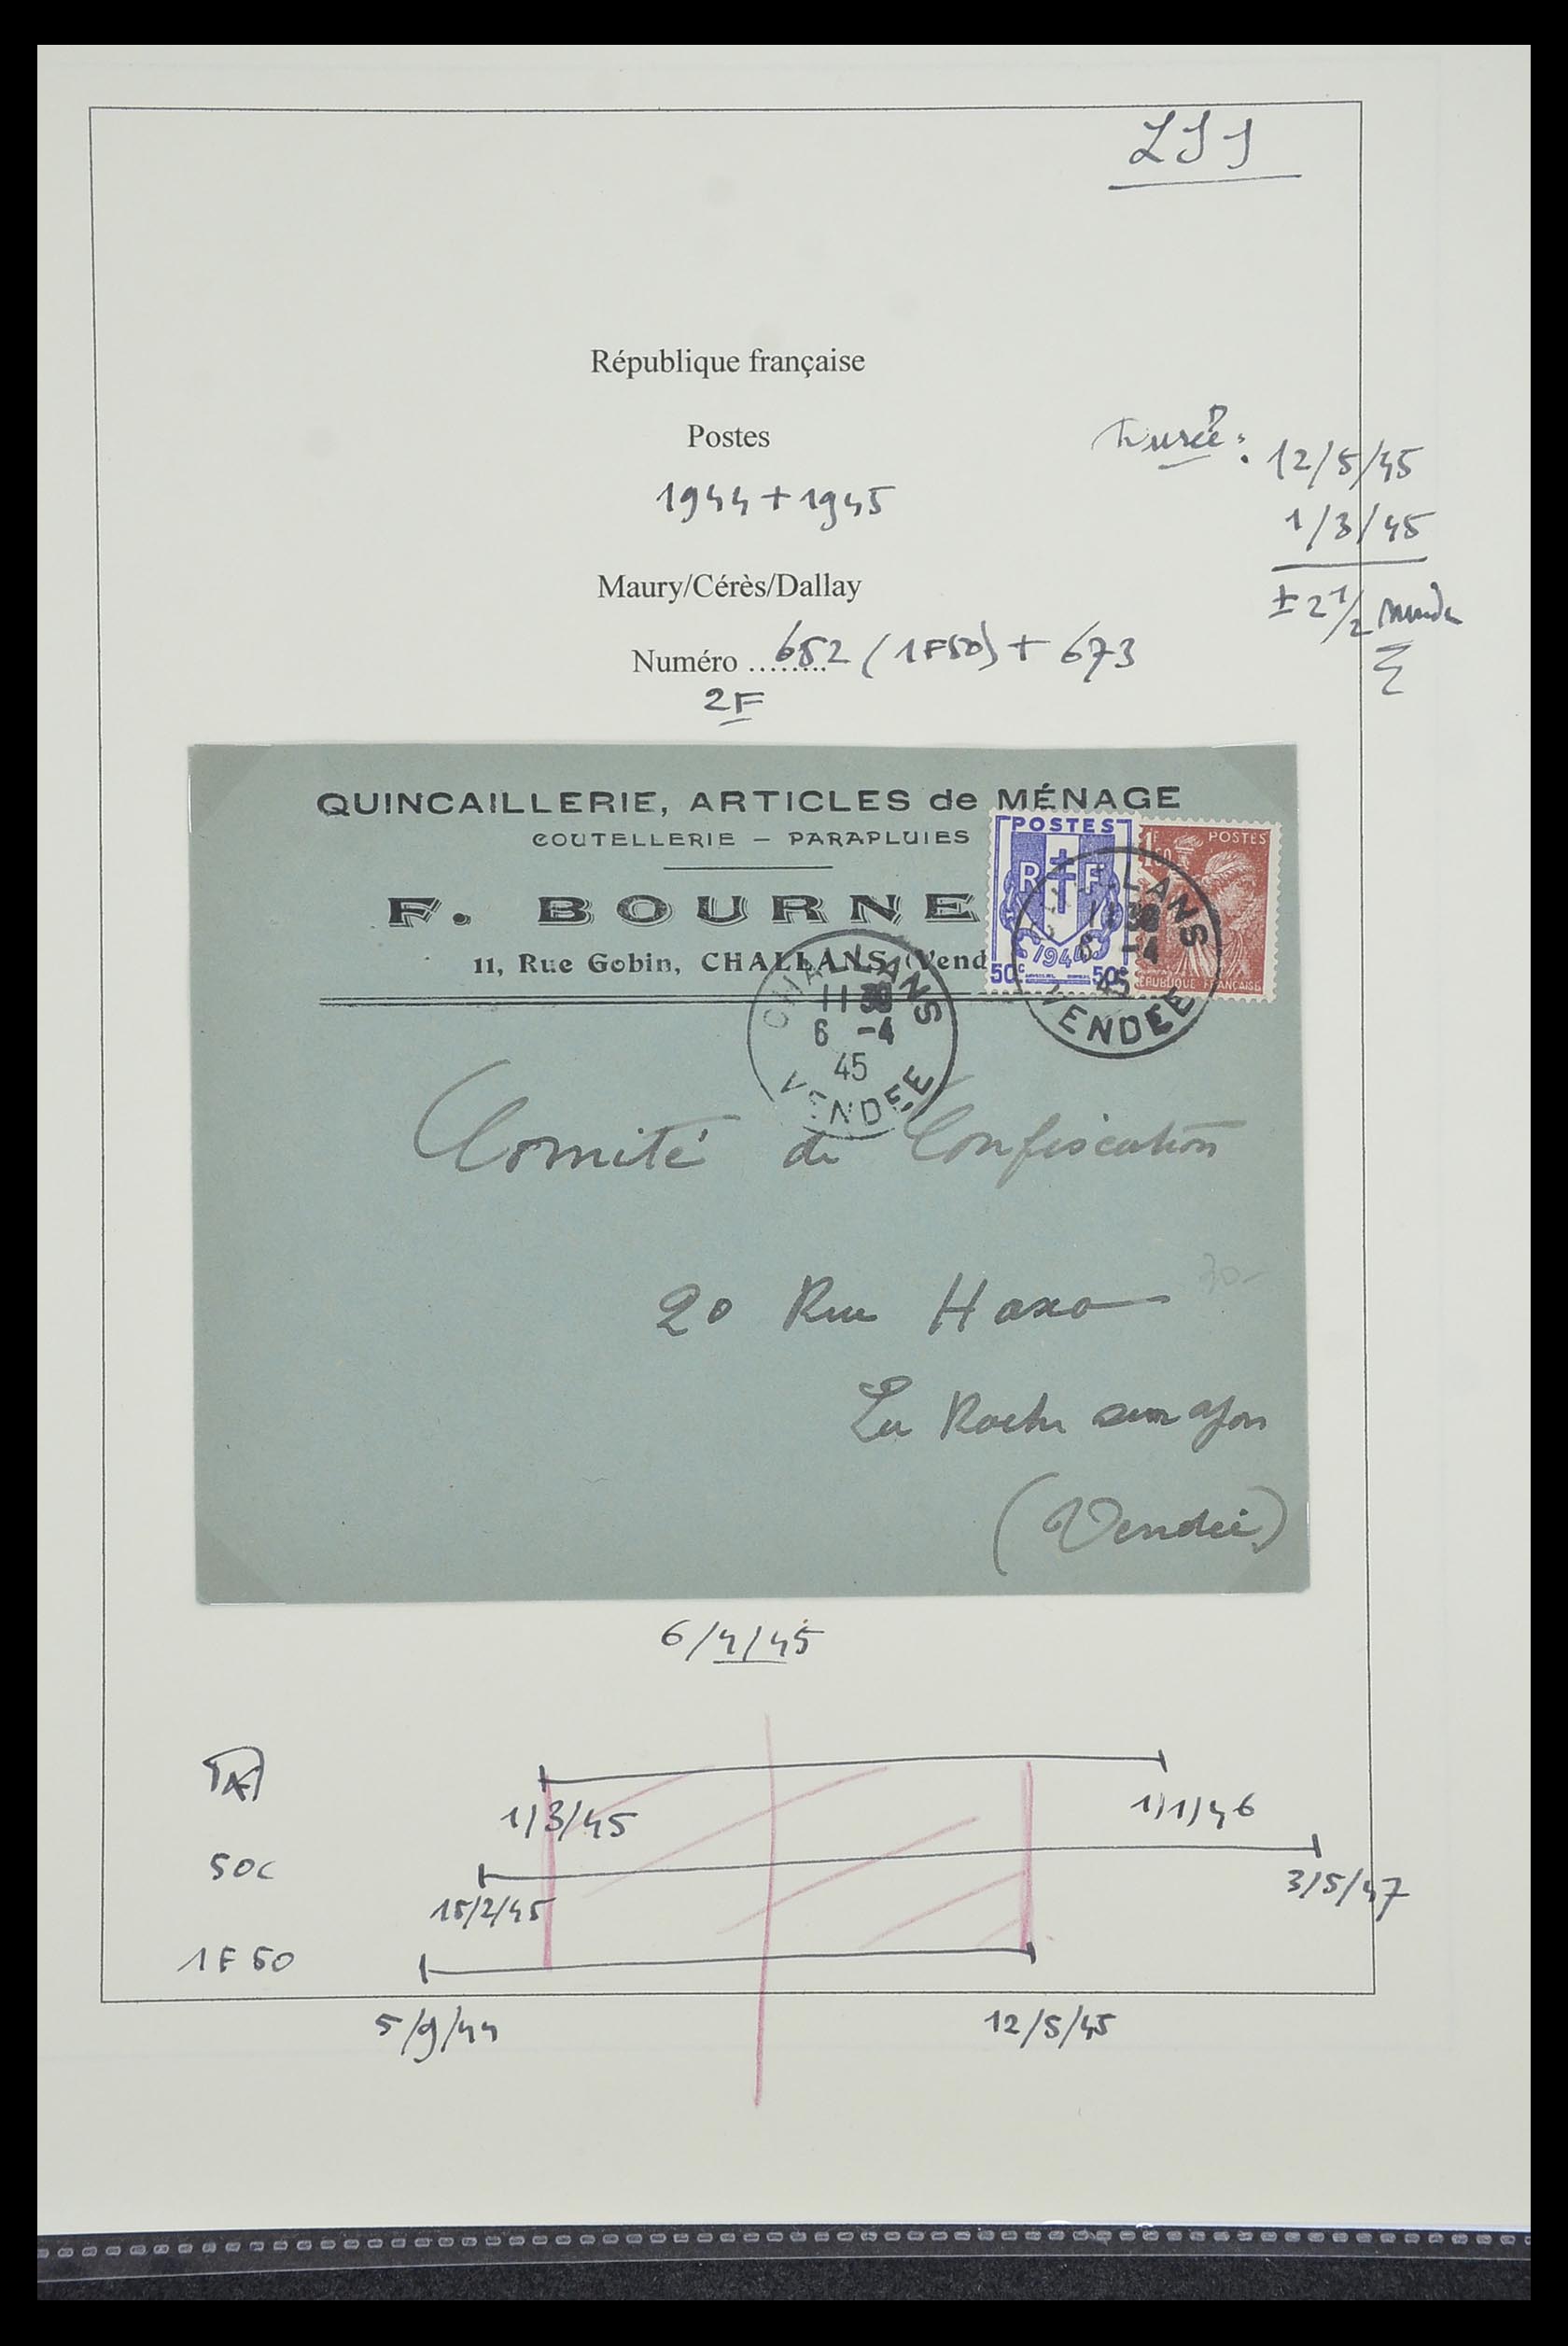 LSS
République française
Postes
1944 + 1945
Durée : 12/5/45
1/3/45
± 2 1/2
Maury/Cérès/Dallay
Numéro ........ 652 (1F50) + 673
2F
QUINCAILLERIE, ARTICLES de MÉNAGE
COUTELLERIE — PARAPLUIES
F. BOURNE
11, Rue Gobin, CHALLANS (Vend
POSTES
R F
1944
50c 50c
1F 50 POSTES
RÉPUBLIQUE FRANÇAISE
CHALLANS
11 30
6 -4
45
VENDEE
CHALLANS
11 30
6 -4
45
VENDEE
Comité de Confiscation
20 Rue Haxo
30-
La Roche sur Yon
(Vendée)
6/4/45
1/3/45 1/1/46
50c
15/2/45 3/5/47
1F50
5/9/44 12/5/45